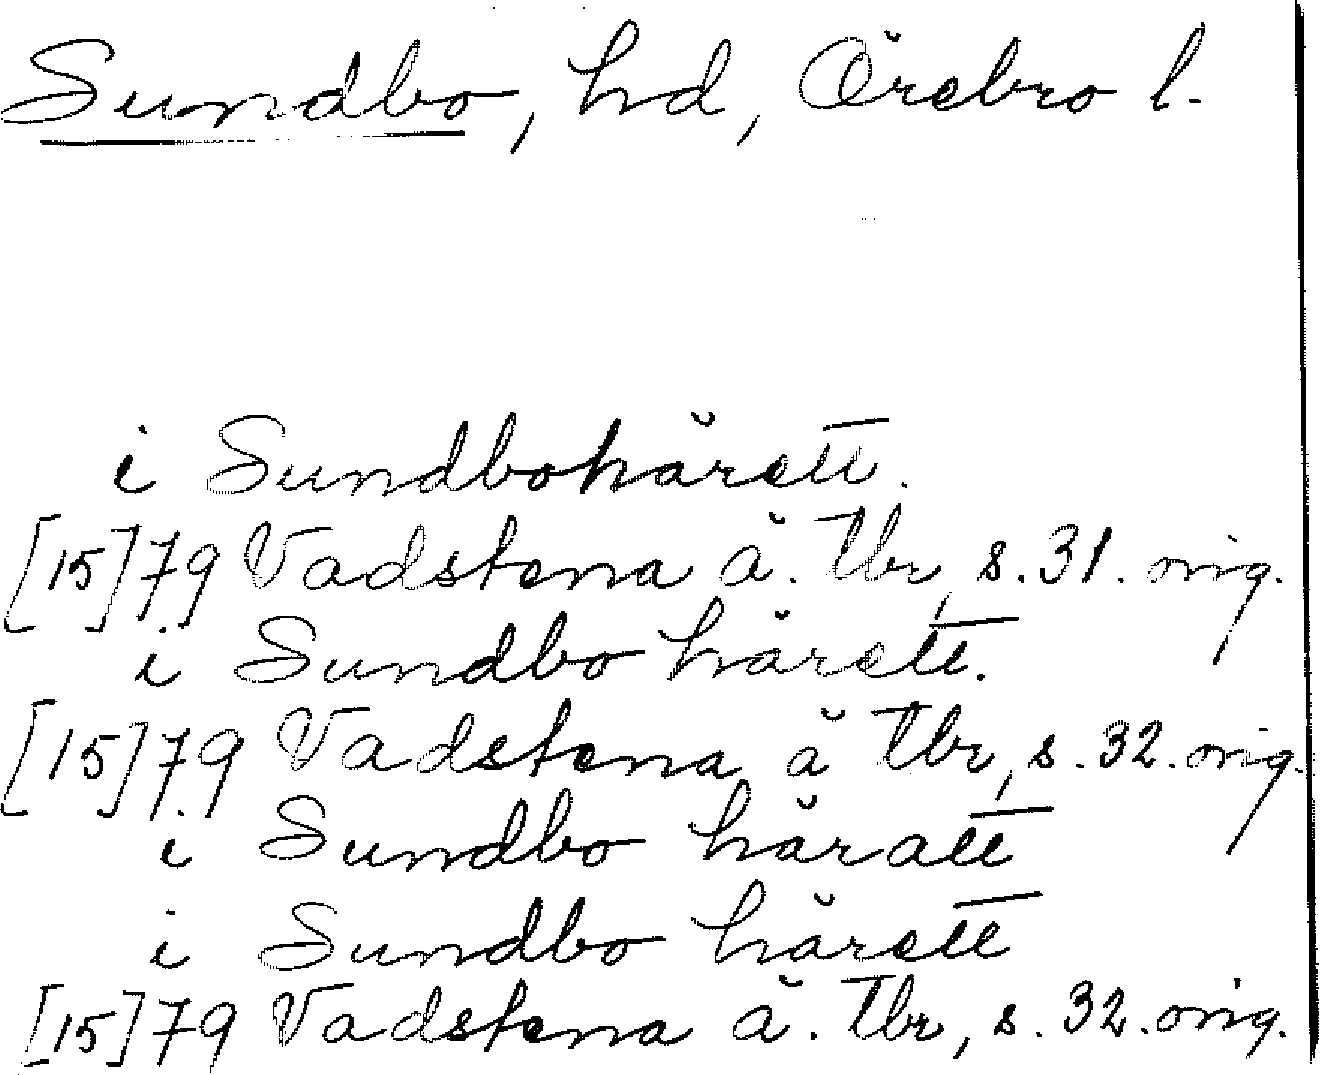 Sundbo, hd, Örebro l.
i Sundbohärett.
[15]79 Vadstena ä. Tbr, s. 31. orig.
i Sundbo härett.
[15]79 Vadstena ä Tbr, s. 32. orig.
i Sundbo häratt
i Sundbo härett
[15]79 Vadstena ä. Tbr, s. 32. orig.